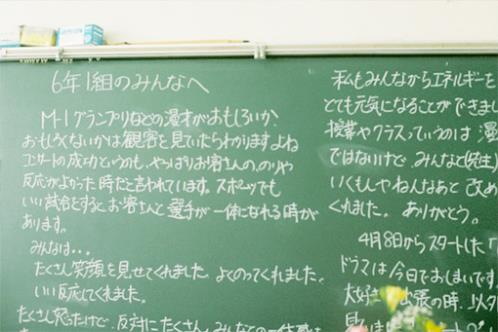 6年1組のみんなへ
M-1グランプリなどの漫才がおもしろいか、
おもしろくないかは観客を見ていたらわかりますよね
コンサートの成功というのも、やっぱりお客さんの、のりや
反応がよかった時だと言われています。スポーツでも
いい試合をするとお客さんと選手が一体になれる時が
あります。
みんなは・・・
たくさん笑顔を見せてくれました。よくのってくれました。
いい反応してくれました。
たくさん笑ったけど、反対にたくさん
私もみんなからエネルギーを
とても元気になることができまし
授業やクラスっていうのは漫
ではないけど、みんなと(先生)
いくもんやねんなあと改め
くれました。ありがとう。
4月8日からスタートした
ドラマは今日でおしまいです
大好き